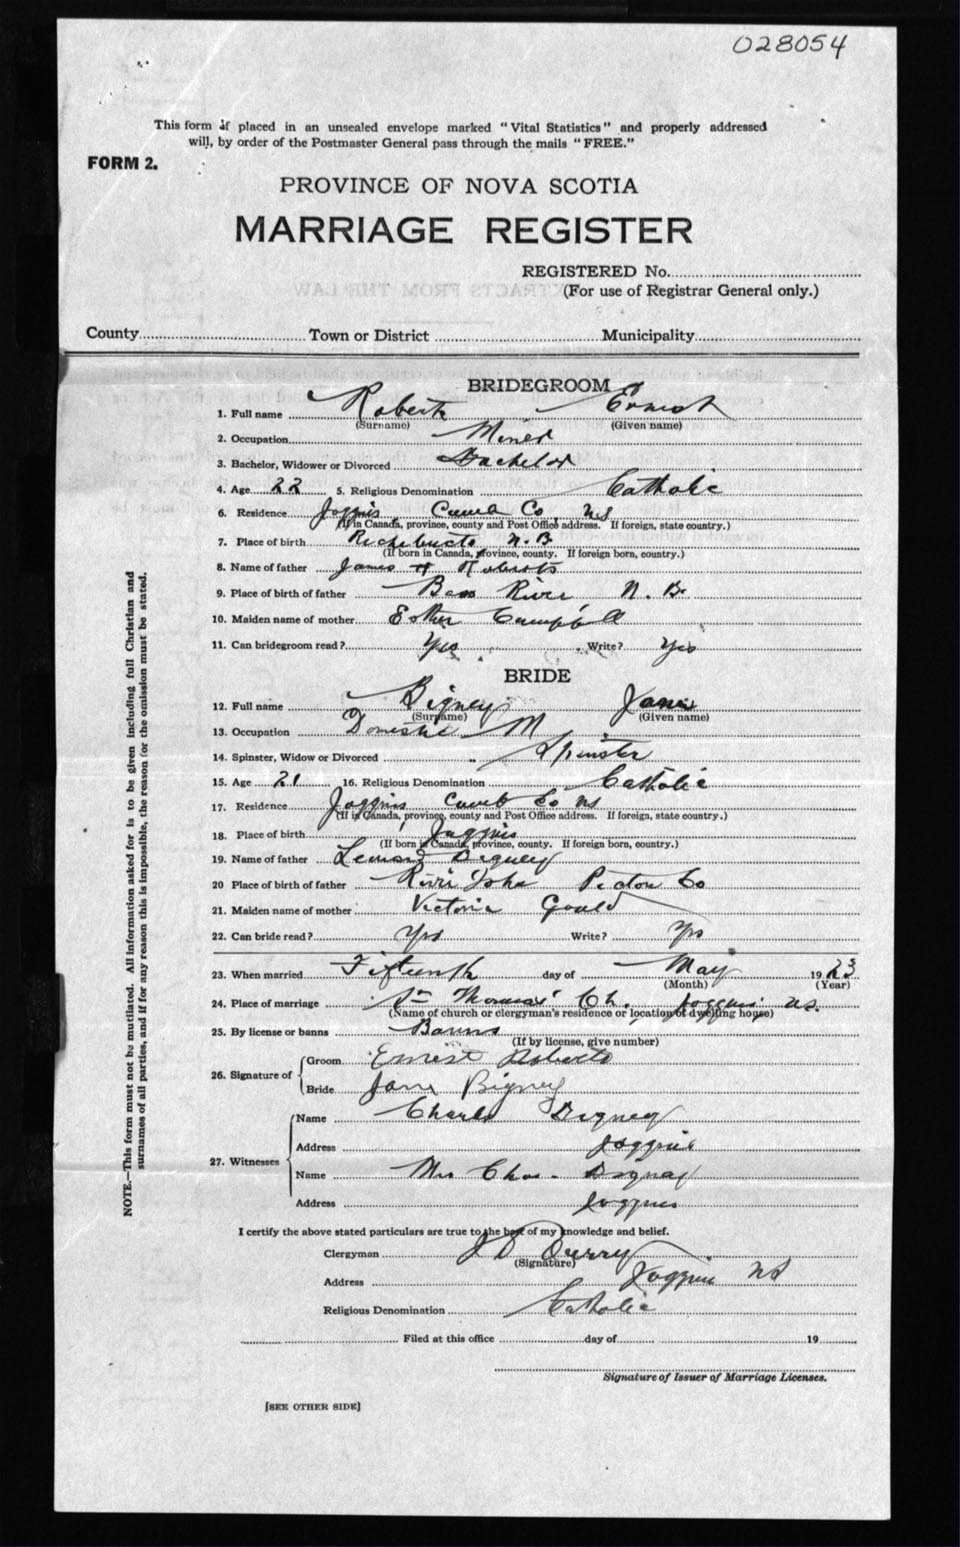 028054
This form if placed in an unsealed envelope marked "Vital Statistics" and properly addressed
will, by order of the Postmaster General pass through the mails "FREE."
FORM 2.
PROVINCE OF NOVA SCOTIA
MARRIAGE REGISTER
REGISTERED No.
(For use of Registrar General only.)
County Town or District Municipality
BRIDEGROOM
1. Full name Roberts Ernest
(Surname) (Given name)
2. Occupation Miner
3. Bachelor, Widower or Divorced Bachelor
4. Age 22 5. Religious Denomination Catholic
6. Residence Joggins Cumb Co. NS
(If in Canada, province, county and Post Office address. If foreign, state country.)
7. Place of birth Richibucto N.B
(If born in Canada, province, county. If foreign born, country.)
8. Name of father James H Roberts
9. Place of birth of father Bass River N.B.
10. Maiden name of mother Esther Campbell
11. Can bridegroom read? Yes Write? Yes
BRIDE
12. Full name Bigney Jane
(Surname) (Given name)
13. Occupation Domestic M
14. Spinster, Widow or Divorced Spinster
15. Age 21 16. Religious Denomination Catholic
17. Residence Joggins Cumb Co NS
(If in Canada, province, county and Post Office address. If foreign, state country.)
18. Place of birth Joggins
(If born in Canada, province, county. If foreign born, country.)
19. Name of father Bigney
20 Place of birth of father River John Pictou Co
21. Maiden name of mother Victoria Gould
22. Can bride read? Yes Write? Yes
23. When married Fifteenth day of May 1923
(Month) (Year)
24. Place of marriage St Thomas' Ch. Joggins NS.
(Name of church or clergyman's residence or location of dwelling house)
25. By license or banns Banns
(If by license, give number)
26. Signature of Groom Ernest Roberts
Bride Jane Bigney
27. Witnesses Name Charles Bigney
Address Joggins
Name Mrs Chas. Bigney
Address Joggins
I certify the above stated particulars are true to the best of my knowledge and belief.
Clergyman
(Signature)
Address Joggins NS
Religious Denomination Catholic
Filed at this office day of 19
Signature of Issuer of Marriage Licenses.
[SEE OTHER SIDE]
NOTE.—This form must not be mutilated. All information asked for is to be given including full Christian and
surnames of all parties, and if for any reason this is impossible, the reason for the omission must be stated.